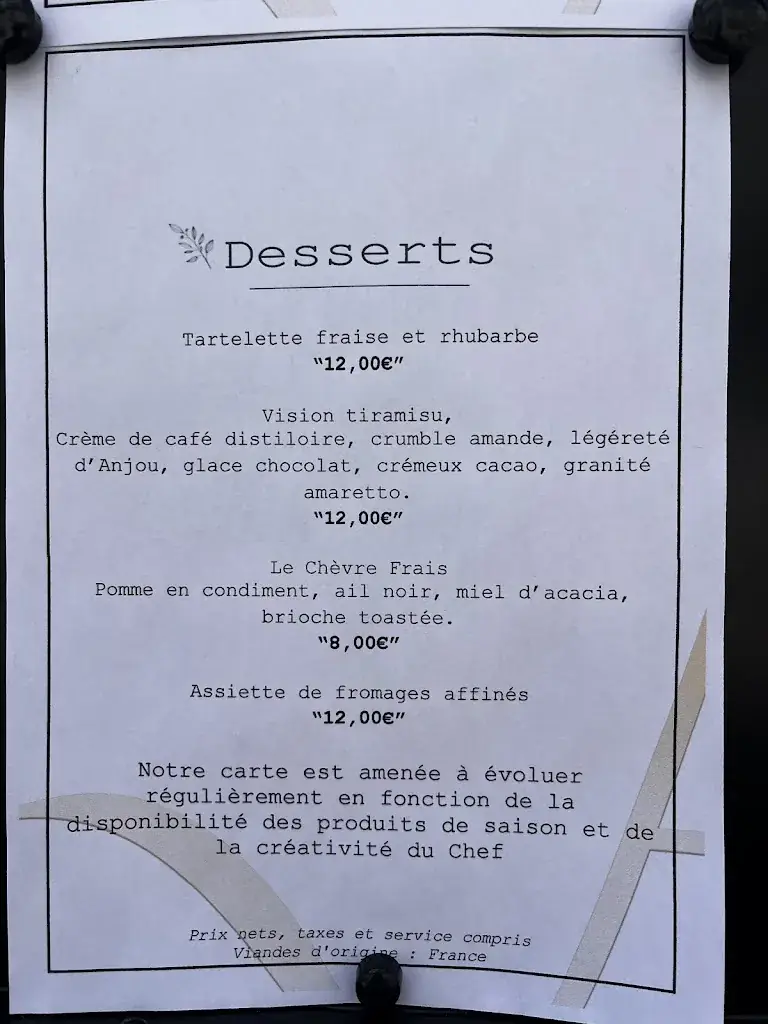 Desserts
Tartelette fraise et rhubarbe
"12,00€"
Vision tiramisu,
Crème de café distiloire, crumble amande, légéreté
d'Anjou, glace chocolat, crémeux cacao, granité
amaretto.
"12,00€"
Le Chèvre Frais
Pomme en condiment, ail noir, miel d'acacia,
brioche toastée.
"8,00€"
Assiette de fromages affinés
"12,00€"
Notre carte est amenée à évoluer
régulièrement en fonction de la
disponibilité des produits de saison et de
la créativité du Chef
Prix nets, taxes et service compris
Viandes d'origine : France